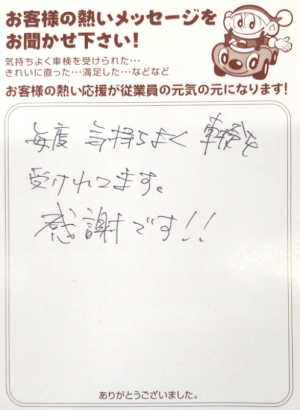 お客様の熱いメッセージを
お聞かせ下さい!
気持ちよく車検を受けられた…
きれいに直った…満足した…などなど
お客様の熱い応援が従業員の元気の元になります!
毎度 気持ちよく 車検を
受けれてます。
感謝です!!
ありがとうございました。